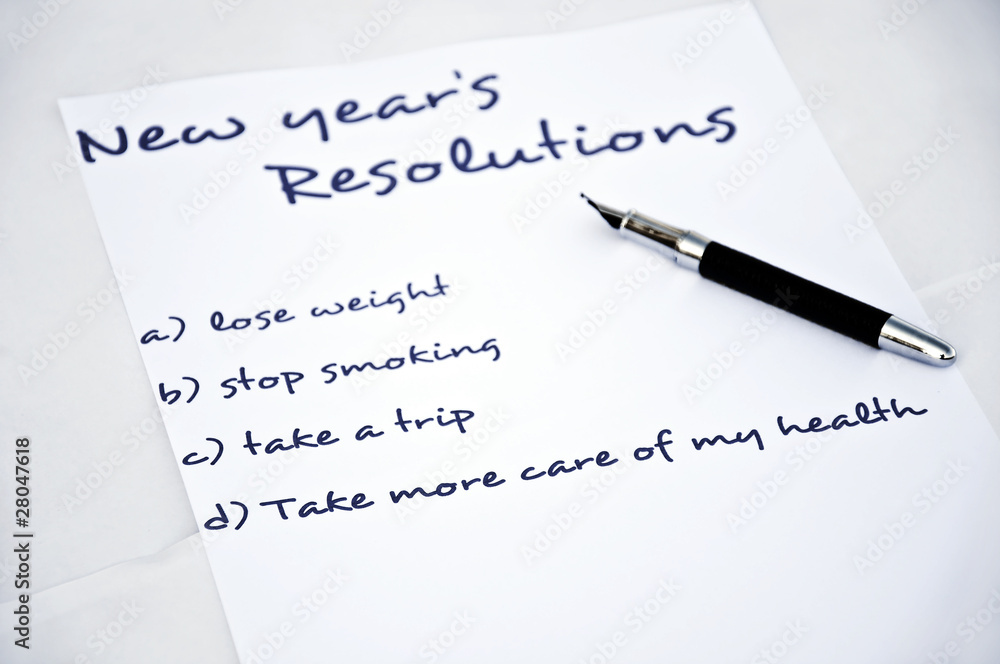 New year's
Resolutions
a) lose weight
b) stop smoking
c) take a trip
d) Take more care of my health
Adobe Stock | #28047618